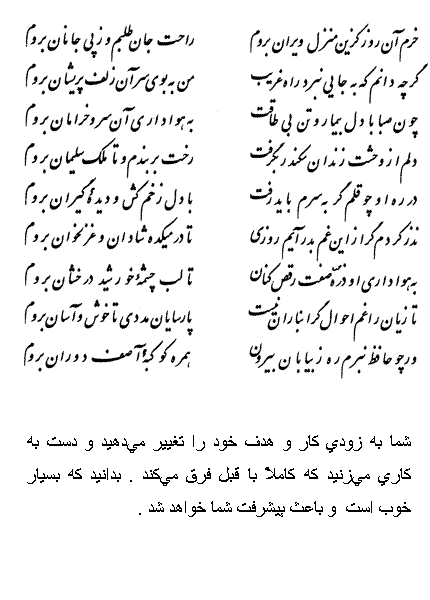 خرم آن روز کزین منزل ویران بروم راحت جان طلبم و ز پی جانان بروم
گرچه دانم که به جایی نبرد راه غریب من به بوی سر آن زلف پریشان بروم
چون صبا با دل بیمار و تن بی طاقت به هواداری آن سرو خرامان بروم
دلم از وحشت زندان سکندر بگرفت رخت بربندم و تا ملک سلیمان بروم
در ره او چو قلم گر به سرم باید رفت با دل زخم کش و دیدهٔ گریان بروم
نذر کردم گر از این غم بدر آیم روزی تا در میکده شادان و غزلخوان بروم
به هواداری او ذره صفت رقص کنان تا لب چشمهٔ خورشید درخشان بروم
تازیان را غم احوال گرانباران نیست پارسایان مددی تا خوش و آسان بروم
ور چو حافظ نبرم ره ز بیابان بیرون همره کوکبهٔ آصف دوران بروم
شما به زودي کار و هدف خود را تغيير مي‌دهيد و دست به
کاري مي‌زنيد که کاملاً با قبل فرق مي‌کند . بدانيد که بسيار
خوب است و باعث پيشرفت شما خواهد شد .